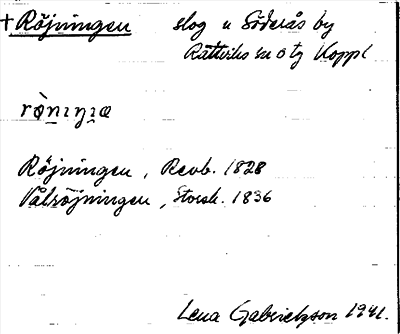 + Röjningen slog u Söderås by
Rättviks sn o tg Koppl
rò̀nıŋıæ
Röjningen, Revb. 1828
Vålröjningen, Storsk. 1836
Lena Gabrielsson 1941.